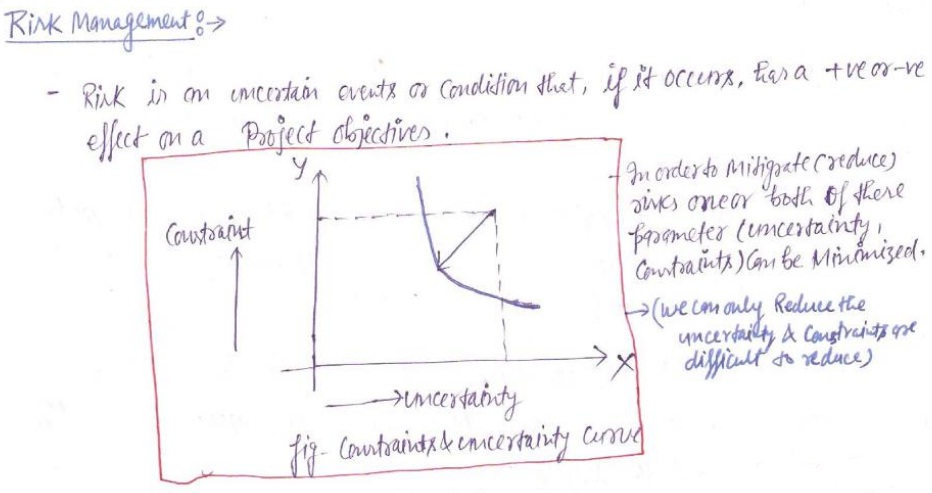 Risk Management:→
- Risk is an uncertain events or Condition that, if it occurs, has a +ve or -ve
effect on a Project objectives.
Y
Constraint
X
→uncertainty
fig- Constraints & uncertainty Curve
- In order to Mitigrate (reduce)
risks one or both of there
parameter (uncertainty,
Constraints) Can be Minimized.
→(we can only Reduce the
uncertainty & Constraints are
difficult to reduce)